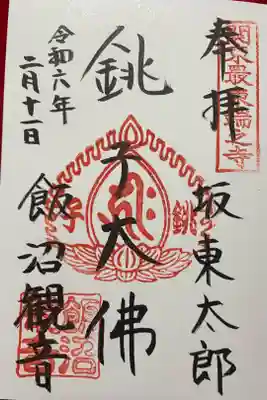 関東最東端之寺
奉拝
坂東太郎
銚子大佛
銚
子
令和六年
二月十一日
飯沼観音
飯沼